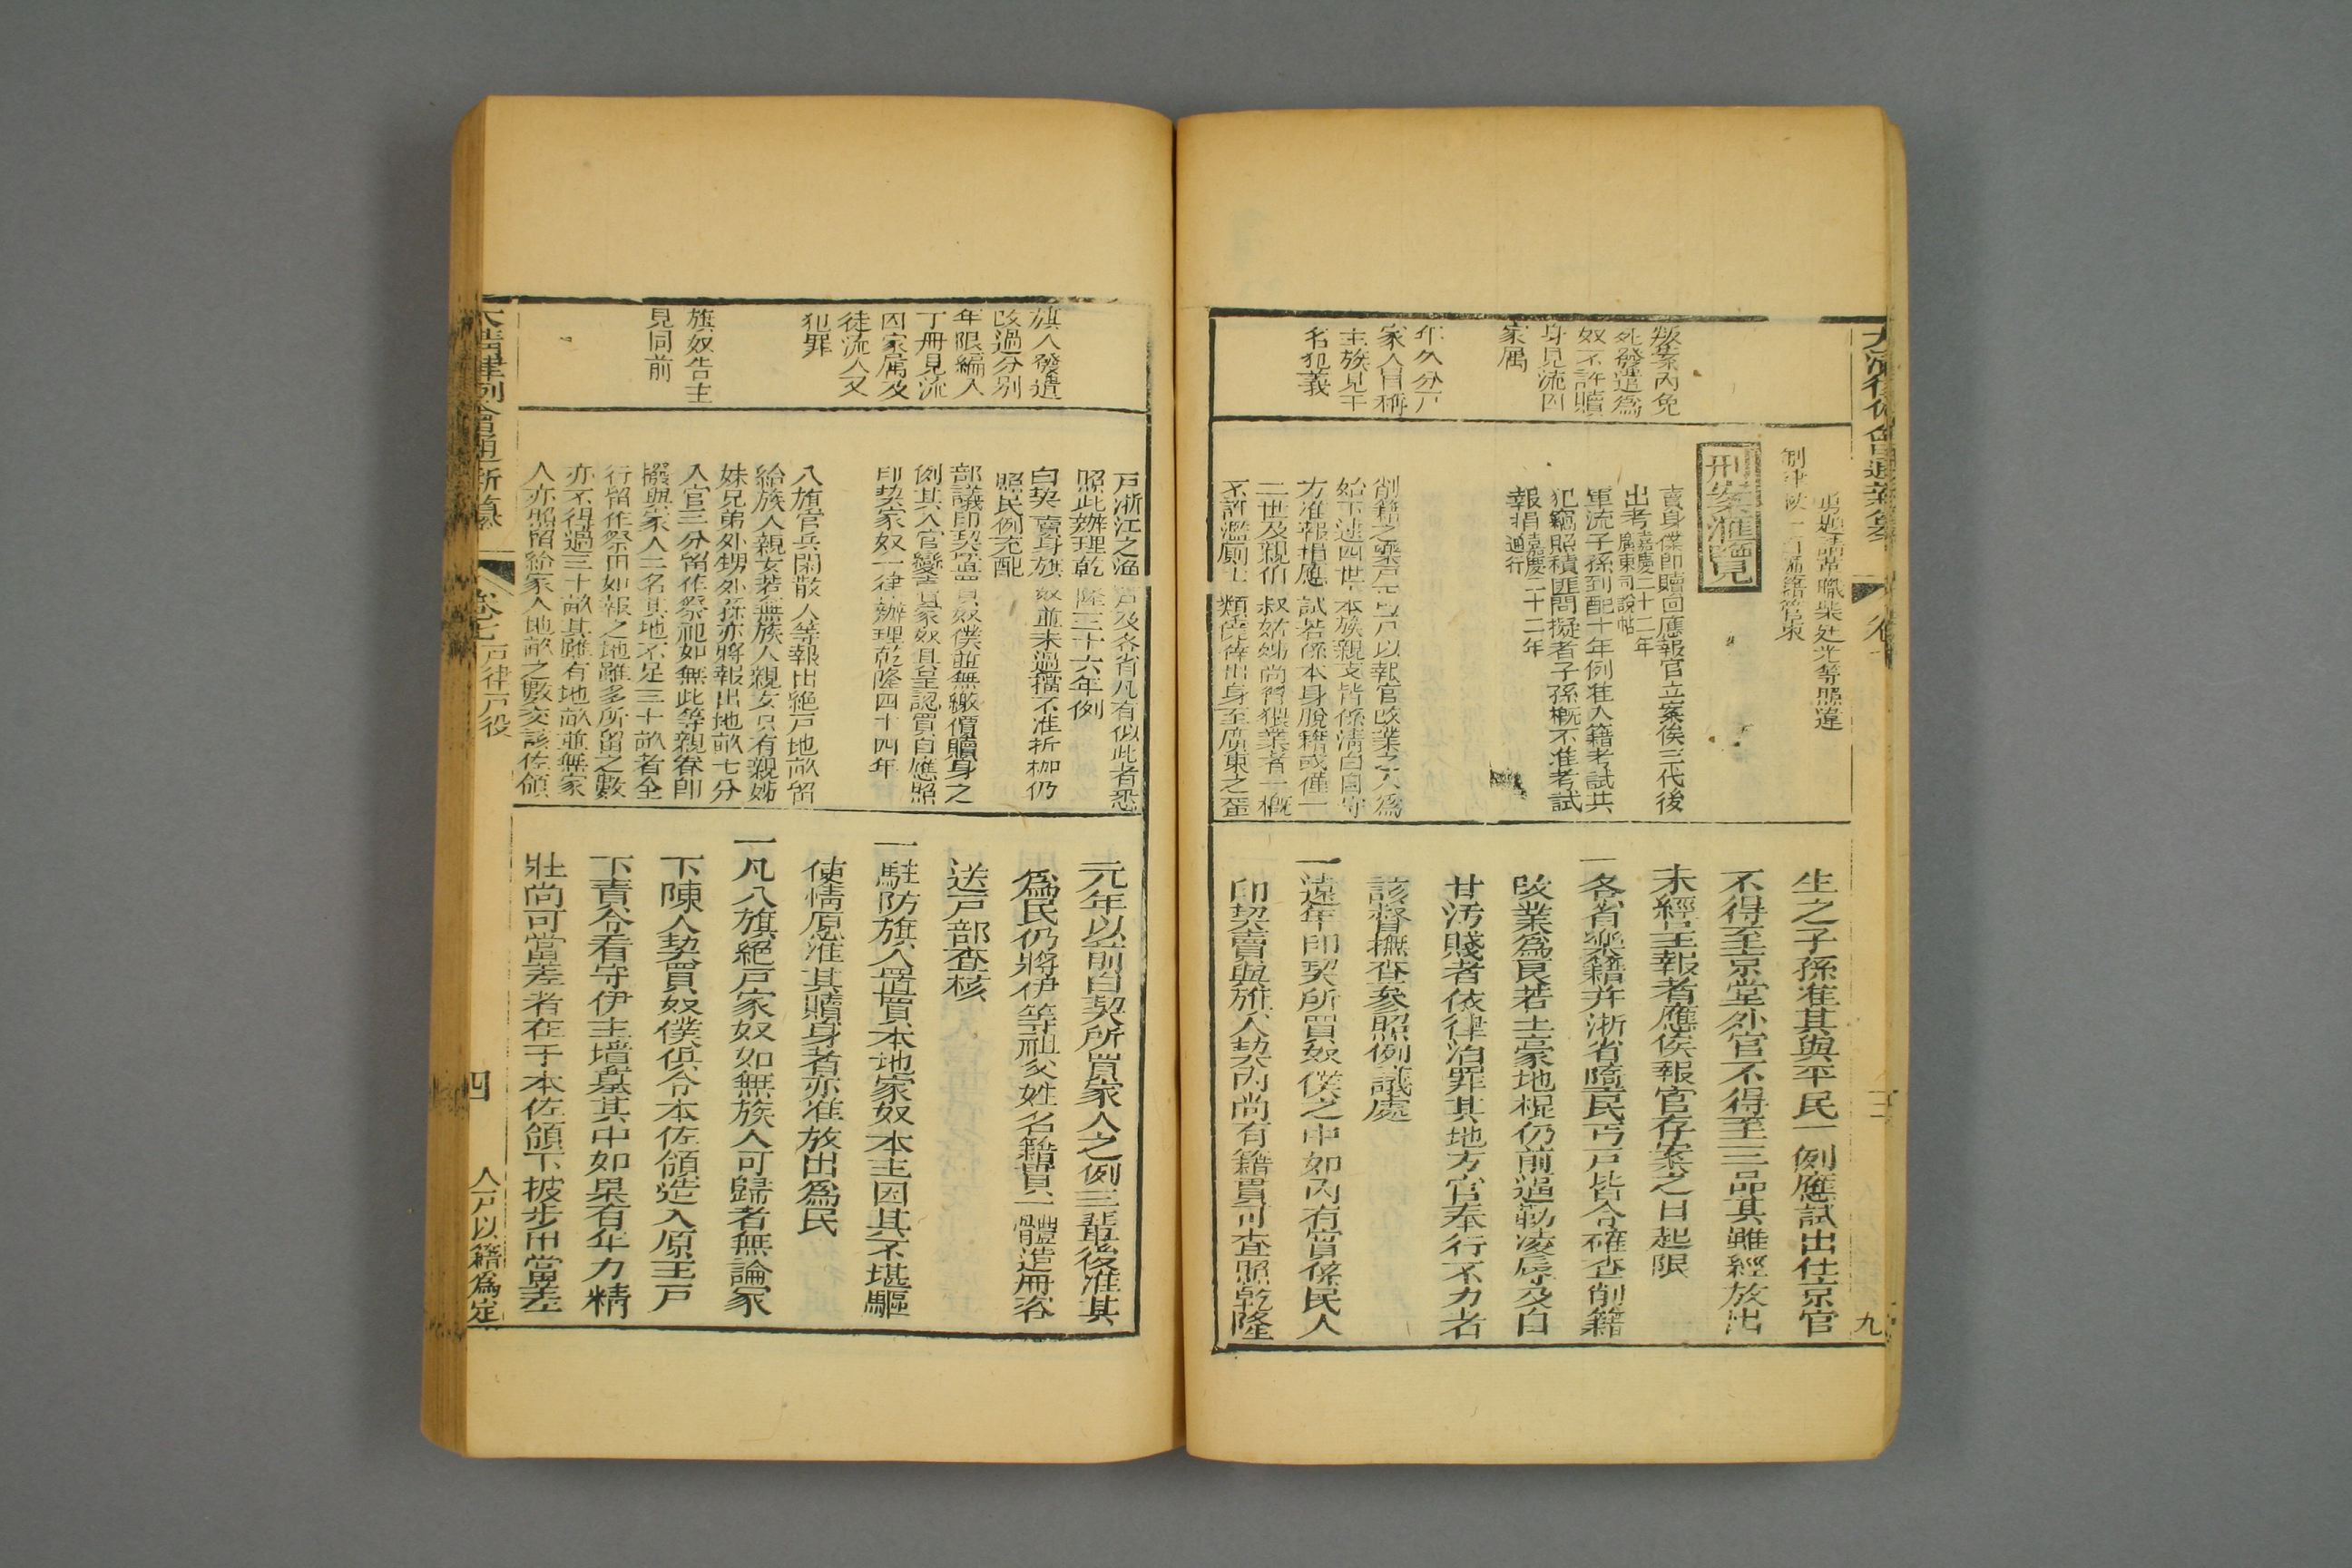 叛案內免
死發遣爲
奴不許贖
身見流囚
家属
年久分戸
家人冒稱
主族見干
名犯義
制律杖一百流籍管束
刑案滙覽
賣身僕卽贖回應報官立案俟三代後
出考嘉慶二十二年廣東司說帖
軍流子孫到配十年例准入籍考試其
犯竊照積匪問擬者子孫槪不准考試
報捐嘉慶二十二年通行
削籍之樂戸丐戸以報官改業之人爲
始下逮四世本族親支皆係淸白自守
方准報捐應試若係本身脫籍或僅一
二世及親伯叔姑姊尚習猥業者一槪
不許濫厠士類僥倖出身至廣東之蜑
生之子孫准其與平民一例應試出仕京官
不得至京堂外官不得至三品其雖經放出
未經呈報者應俟報官存案之日起限
一各省樂籍并浙省墮民丐戸皆令確查削籍
改業爲良若土豪地棍仍前逼勒凌辱及自
甘汚賤者依律治罪其地方官奉行不力者
該督撫查參照例議處
一遠年印契所買奴僕之中如內有實係民人
印契賣與旂人契內尚有籍貫可查照乾隆
九
旗人發遣
改過分别
年限編入
丁冊見流
囚家属及
徒流人又
犯罪
旗奴告主
見同前
戸浙江之漁戸及各省凡有似此者悉
照此辦理乾隆三十六年例
白契賣身旗奴並未過擋不准折枷仍
照民例充配
部議印契置買奴僕並無繳價贖身之
例其入官變賣家奴自呈認買自應照
印契家奴一律辦理乾隆四十四年
八旗官兵閑散人等報出絶戸地畝留
給族人親女若無族人親女只有親姊
妹兄弟外甥外孫亦將報出地畝七分
入官三分留作祭祀如無此等親眷卽
撥與家人二名其地不足三十畝者全
行留作祭田如報之地雖多所留之數
亦不得過三十畝其雖有地畝並無家
人亦照留給家人地畝之數交該佐領
元年以前白契所買家人之例三輩後准其
爲民仍將伊等祖父姓名籍貫一體造冊咨
送戸部查核
一駐防旗人置買本地家奴本主因其不堪驅
使情愿准其贖身者亦准放出爲民
一凡八旗絶戸家奴如無族人可歸者無論家
下陳人契買奴僕俱令本佐領造入原主戸
下責令看守伊主墳墓其中如果有年力精
壯尚可當差者在于本佐領下披步甲當差
大清律例會通新纂
卷七
戸律戸役
四
人戸以籍爲定